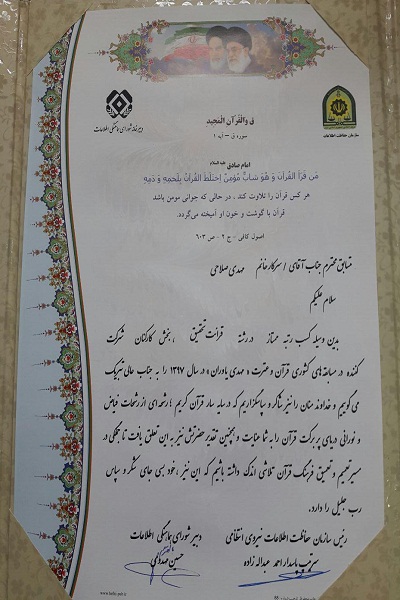 ق وَالْقُرآنِ الْمَجِید
سوره ق – آیه ۱
دبیرخانه شورای هماهنگی اطلاعات
سازمان حفاظت اطلاعات
امام صادق علیه السلام
مَن قَرَأَ القُرآنَ وَ هُوَ شابٌّ مُؤمِنٌ اِختَلَطَ القُرآنُ بِلَحمِهِ وَ دَمِهِ
هر کس قرآن را تلاوت کند ، در حالی که جوانی مومن باشد
قرآن با گوشت و خون او آمیخته می‌گردد.
اصول کافی - ج ۲ - ص ۶۰۳
متسابق محترم جناب آقای / سرکار خانم مهدی صلاحی
سلام علیکم
بدین وسیله کسب رتبه ممتاز در رشته قرائت تحقیق ، بخش کارکنان شرکت
کننده در مسابقه های کشوری قرآن و عترت « مهدی یاوران » در سال ۱۳۹۷ را به جناب عالی تبریک
می گوییم و خداوند منان را نیز شاکر و سپاسگزاریم که در سایه سار قرآن کریم ؛ رشحه ای از رشحات فیاض
و نورانی دریای پر برکت قرآن را به شما عنایت و همچنین تقدیر حضرتش نیز به این تعلق یافت تا جملگی در
مسیر تعمیم و تعمیق فرهنگ قرآن تلاشی اندک داشته باشیم که این نیز ، خود بسی جای شکر و سپاس
رب جلیل را دارد.
رئیس سازمان حفاظت اطلاعات نیروی انتظامی
سرتیپ پاسدار احمد عبداله زاده
دبیر شورای هماهنگی اطلاعات